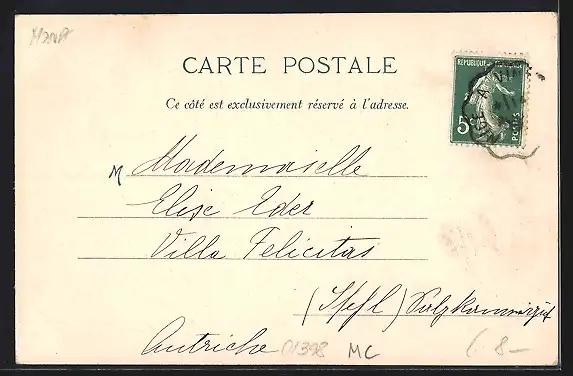 CARTE POSTALE
Ce côté est exclusivement réservé à l'adresse.
RÉPUBLIQUE
5
POSTES
M Mademoiselle
Elise Eder
Villa Felicitas
(Ischl) Salzkammergut
Autriche 01398 MC 8-